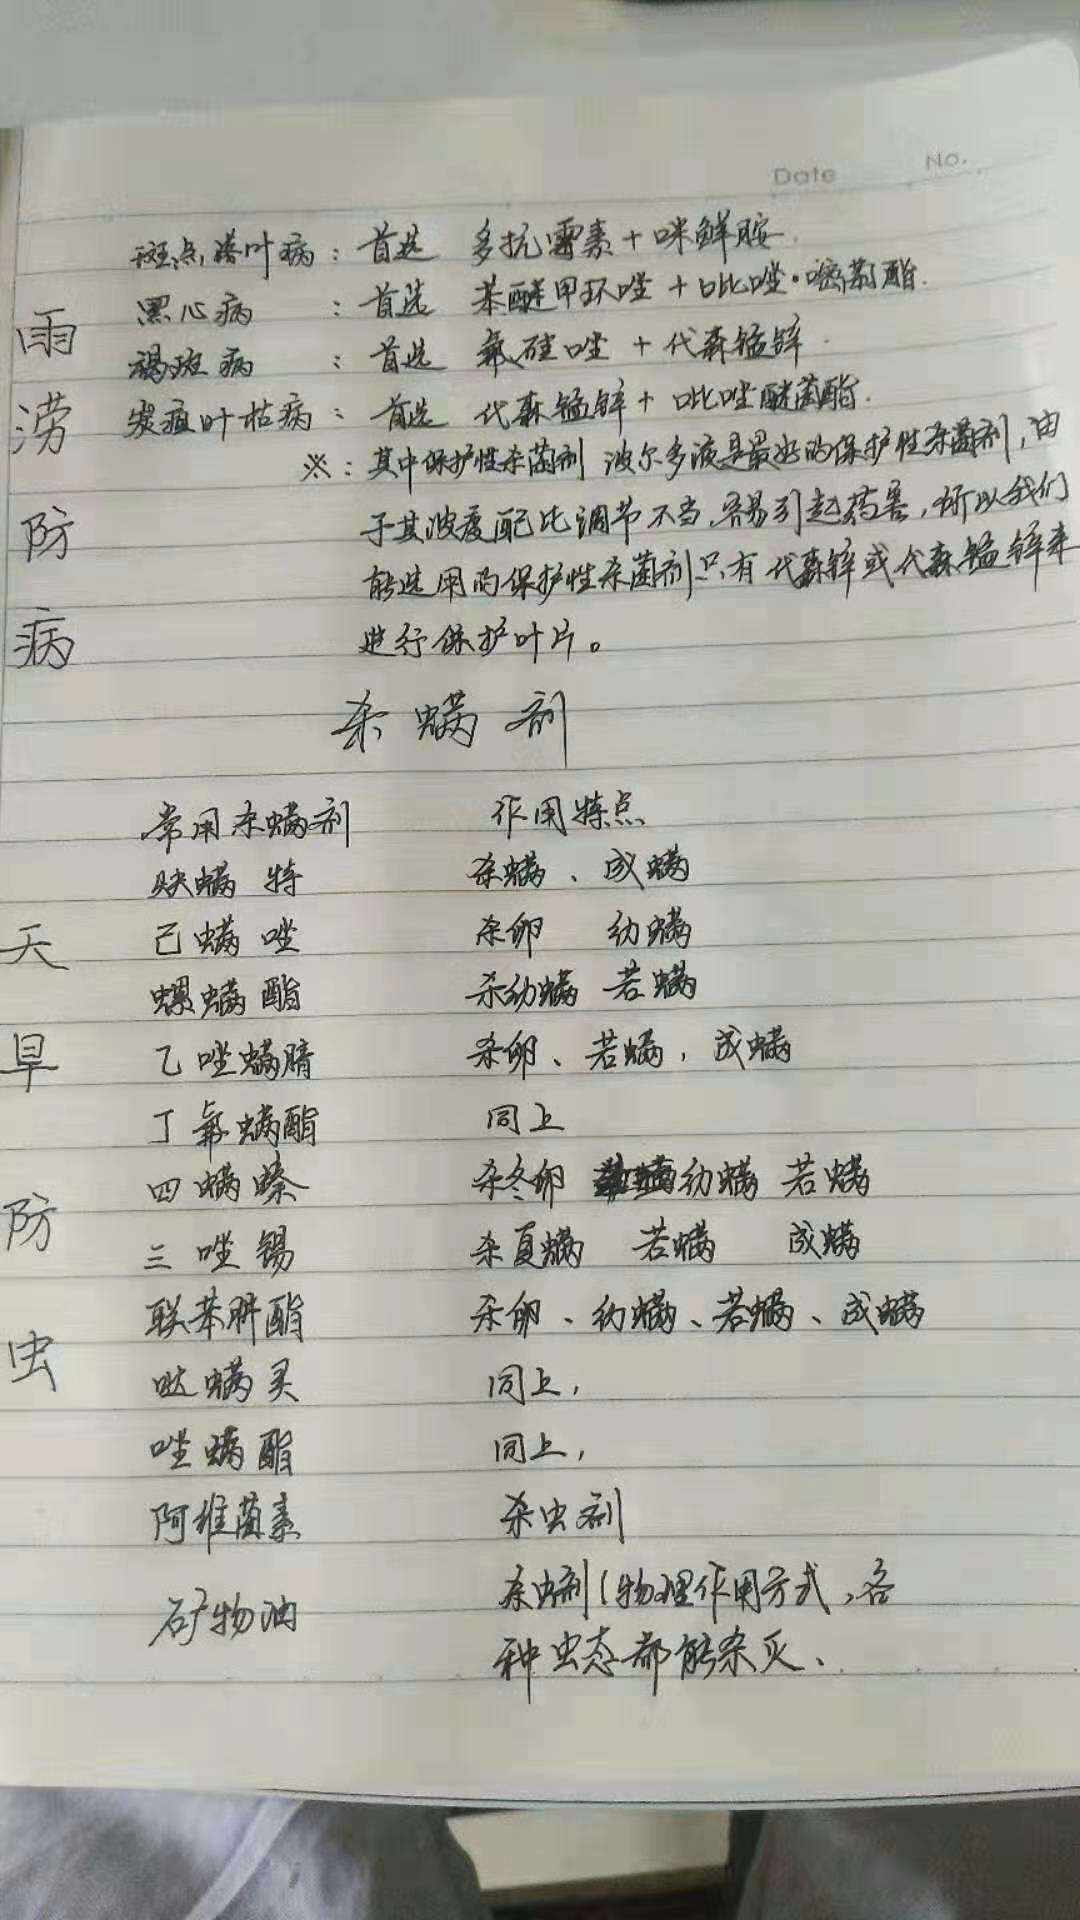 Date No.
斑点落叶病：首选 多抗霉素+咪鲜胺.
黑心病：首选 苯醚甲环唑+吡唑·嘧菌酯.
褐斑病：首选 氟硅唑+代森锰锌.
炭疽叶枯病：首选 代森锰锌+吡唑醚菌酯.
※：其中保护性杀菌剂 波尔多液是最好的保护性杀菌剂，由
于其波度配比调节不当，容易引起药害，所以我们
能选用的保护性杀菌剂只有代森锌或代森锰锌来
进行保护叶片。
雨涝防病
杀螨剂
常用杀螨剂 作用特点
炔螨特 杀螨、成螨
己螨唑 杀卵 幼螨
螺螨酯 杀幼螨 若螨
乙唑螨腈 杀卵、若螨，成螨
丁氟螨酯 同上
四螨嗪 杀冬卵 幼螨 若螨
三唑锡 杀夏螨 若螨 成螨
联苯肼酯 杀卵、幼螨、若螨、成螨
哒螨灵 同上，
唑螨酯 同上，
阿维菌素 杀虫剂
矿物油 杀虫剂(物理作用方式，各
种虫态都能杀灭、
天旱防虫